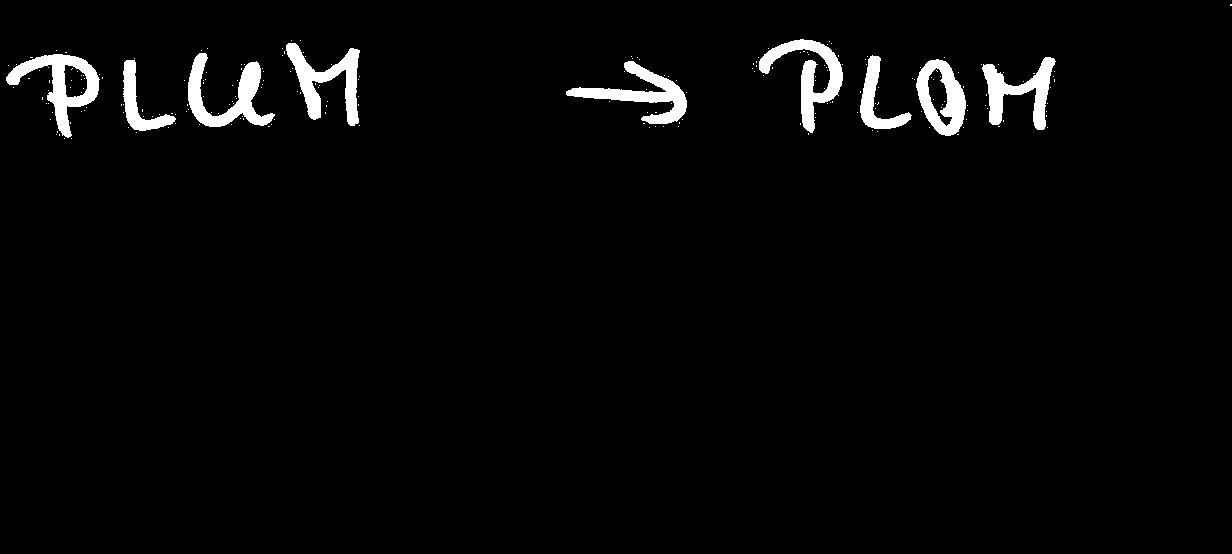 PLUM → PLOM